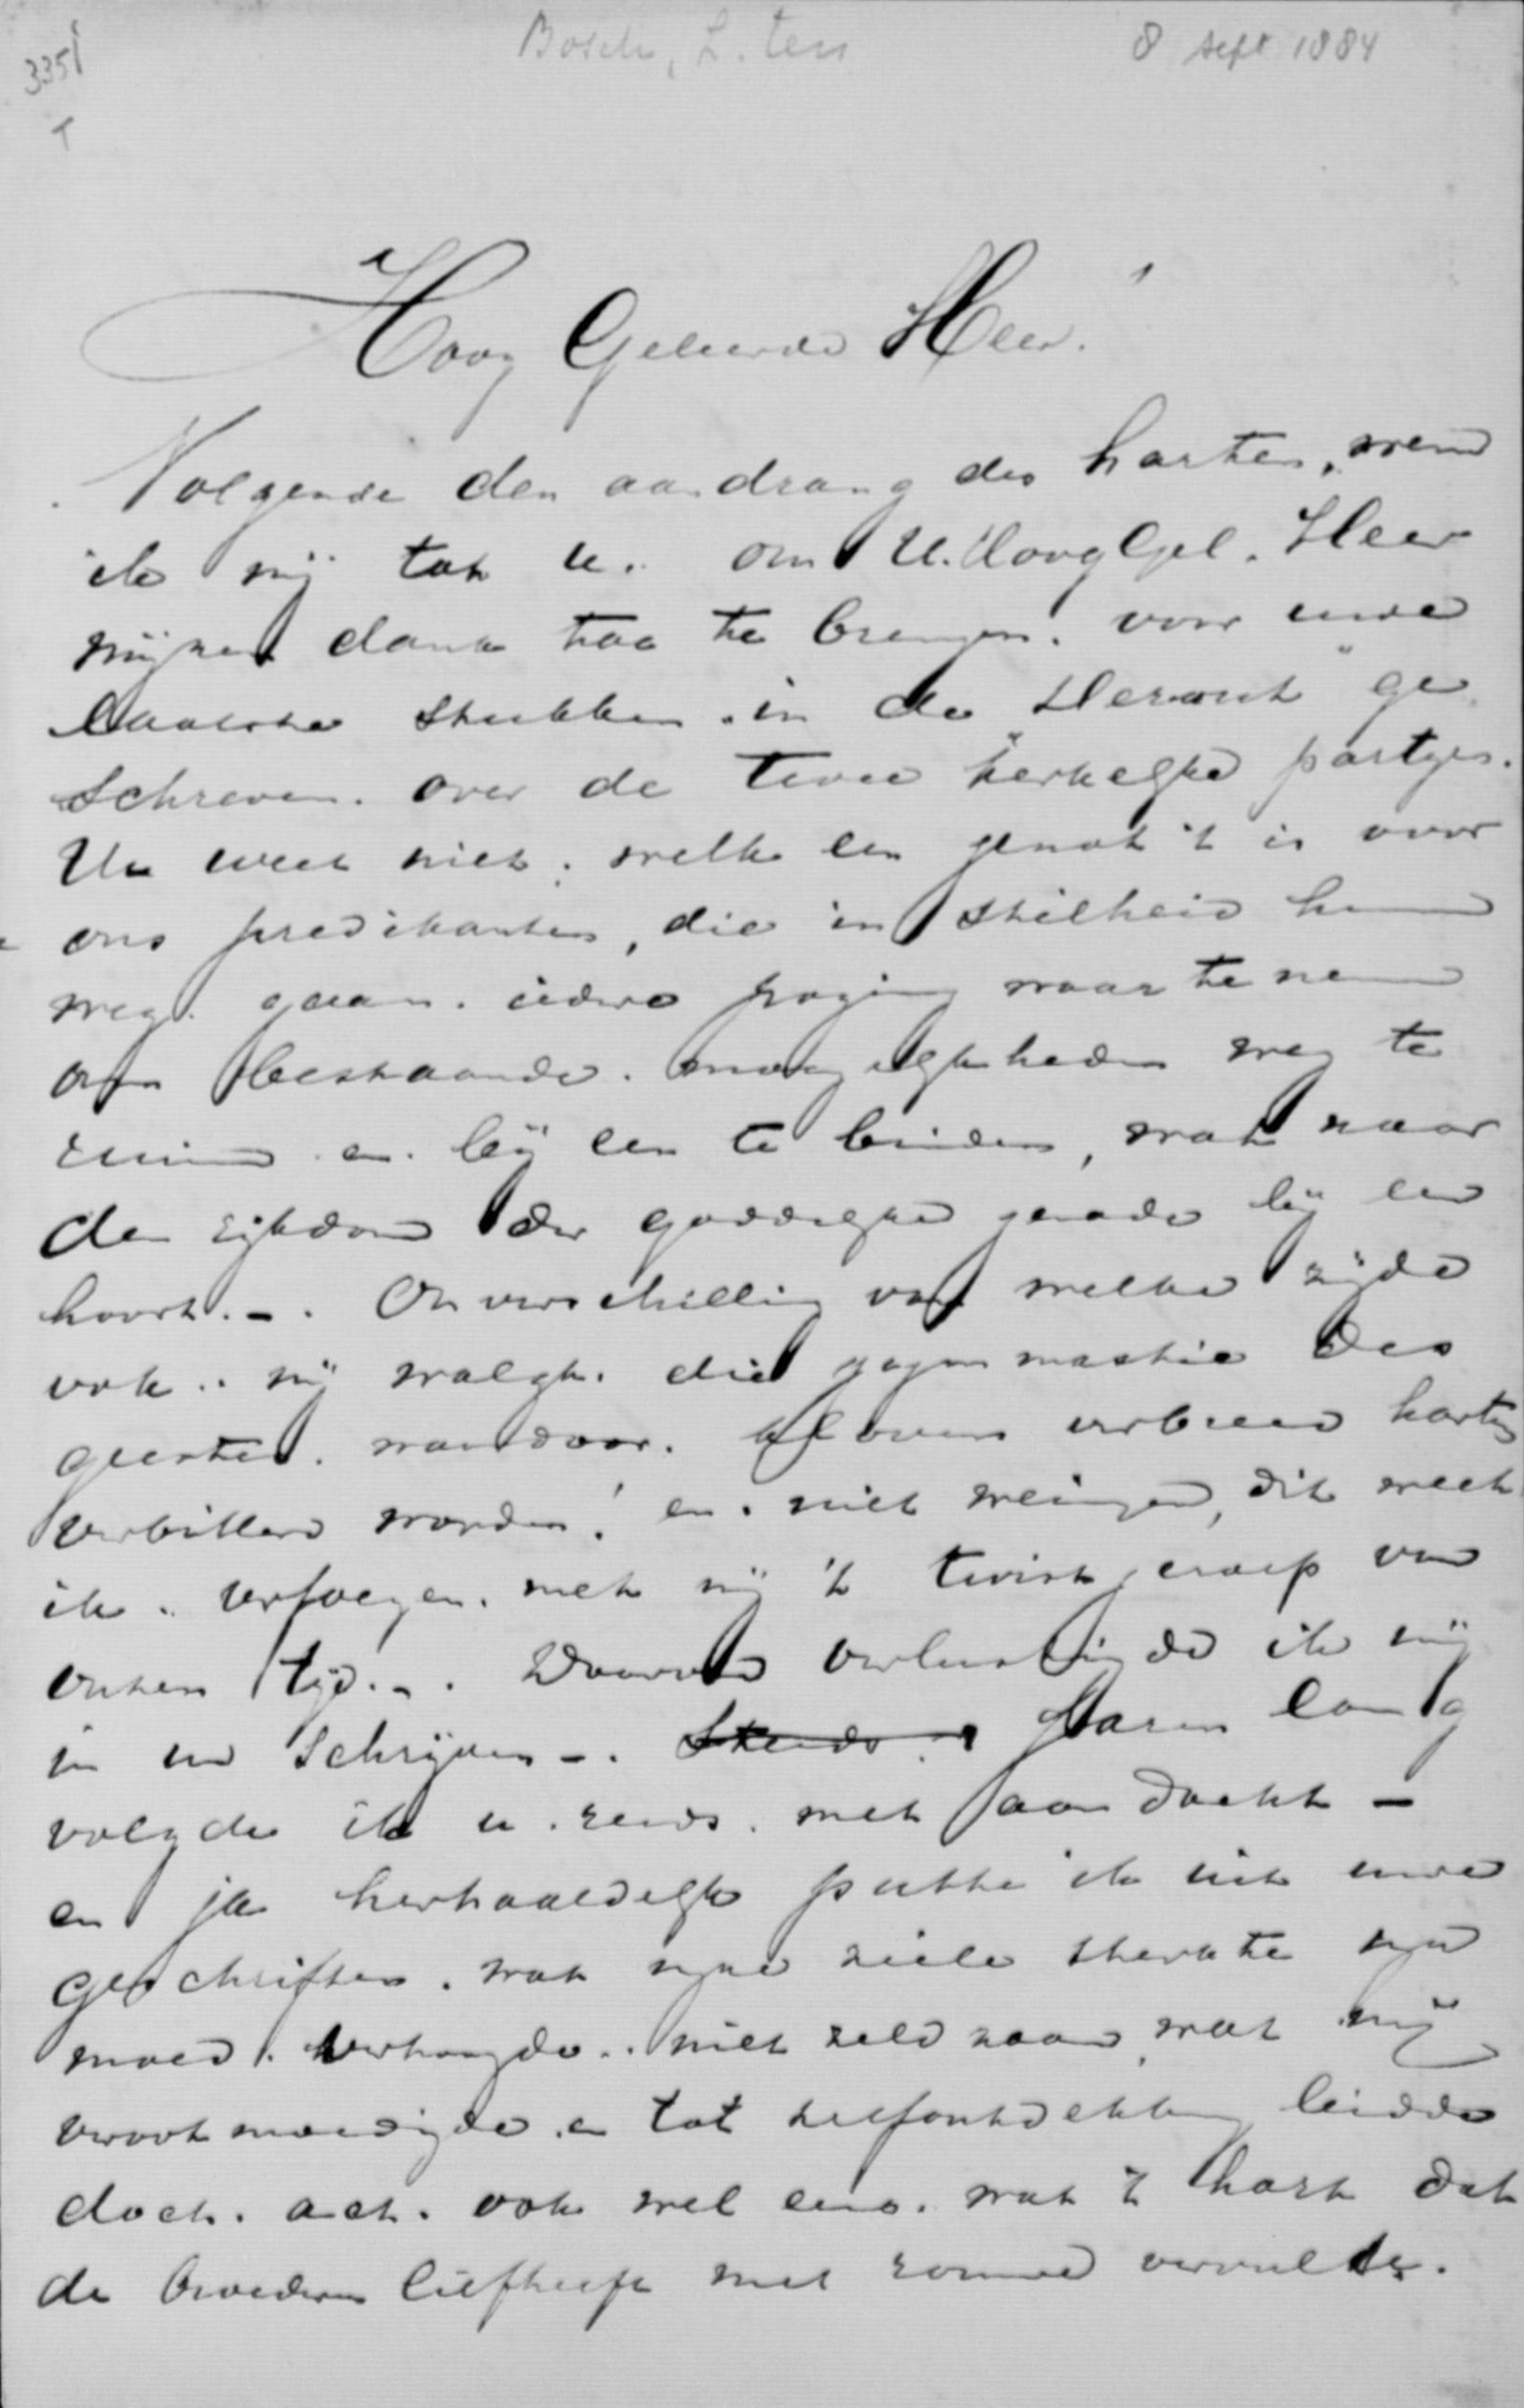 3351
T
Bosch, L. ten
8 Sept 1884
Hoog Geleerde Heer!
Volgende den aandrang des harten, wend
ik mij tot u. om U. HoogGel. Heer
mijnen dank toe te brengen. voor uwe
laatste stukken in de "Heraut" ge
schreven. over de twee kerkelijke partijen.
Uw weet niet. welk een genot 't is voor
ons predikanten, die in stilheid hun
weg gaan. iedere poging waar te nemen
om bestaande. moeyelijkheden weg te
ruimen en. bij een te binden, wat naar
den rijkdom der goddelijke genade bij een
hoort. -. Onverschillig van welke zijde
ook.. mij walgt. die gymnastiek des
geestes. waardoor. hersenen verbreed harten
verbitterd worden! en. niet weinigen, dit weet
ik. verfoeyen. met mij 't twistgeroep van
onzen tijd. -. Daarom verlustigde ik mij
in uw schrijven -. Steeds Jaren lang
volgde ik u. reeds. met aandacht -
en ja herhaaldelijk putte ik uit uwe
geschriften. wat mijne ziele sterkte mijn
moed. verhoogde.. niet zeldzaam, wat mij
verootmoedigde. en tot zelfontdekking leidde
doch. ach. ook wel eens. wat 't hart dat
de broederen liefheeft met rouwe vervulde.